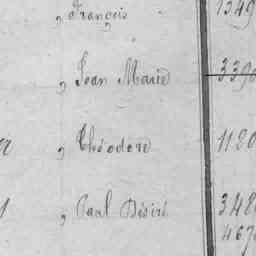 „ François 1349
„ Jean Marie 3390
„ Théodore 1180
„ Paul Désiré 348
467